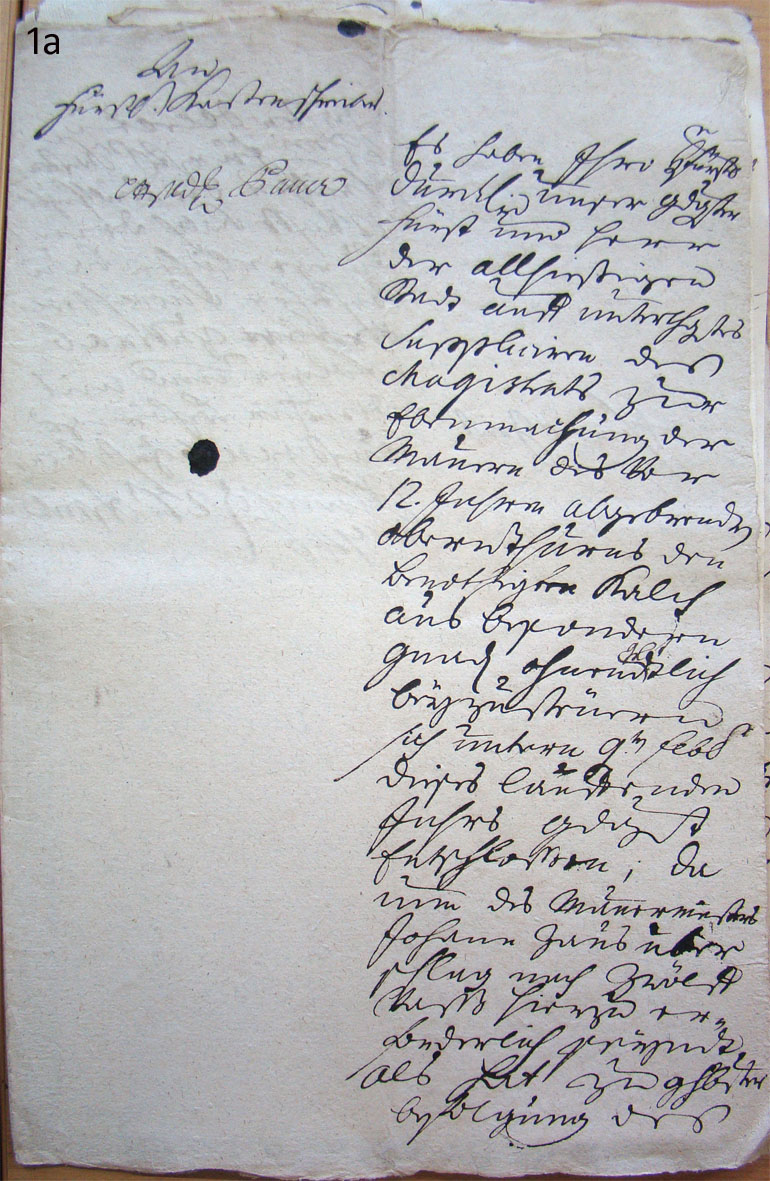 1a
An
Fürstl. Kastenschreiber
Es haben Ihro Hochfürstl
Durchl. Unser gdgster
Fürst und Herr
der allhiesigen
Stadt auff unterthgstes
Suppliciren des
Magistrats zur
Ebenmachung der
Mauern des Vor
12. Jahren abgebrendten
obern Thurns den
benöthigten Kalch
aus besonderen
Gnad ohnendtgeltlich
beÿzusteuern
sich untern 9ten Febr
dieses lauffenden
Jahrs gdgst
Entschlossen; da
nun des Mauermeisters
Johann Jaus über
schlag nach Zwölff
Vass hierzu er-
forderlich seÿndt,
als hat zu ghbster
befolgung des